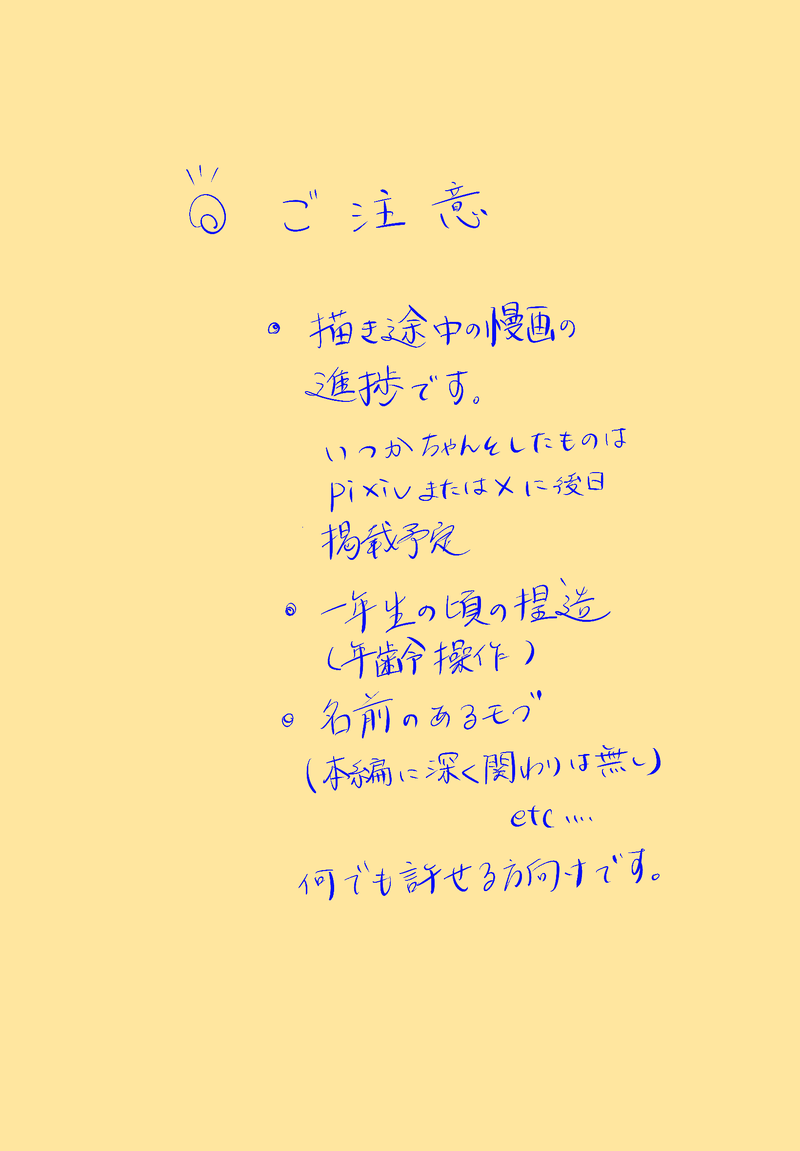 ご注意
• 描き途中の慢画の
進捗です。
いつかちゃんとしたものは
pixivまたはXに後日
掲載予定
• 一年生の頃の捏造
(年齢操作)
• 名前のあるモブ
(本編に深く関わりは無し)
etc....
何でも許せる方向けです。